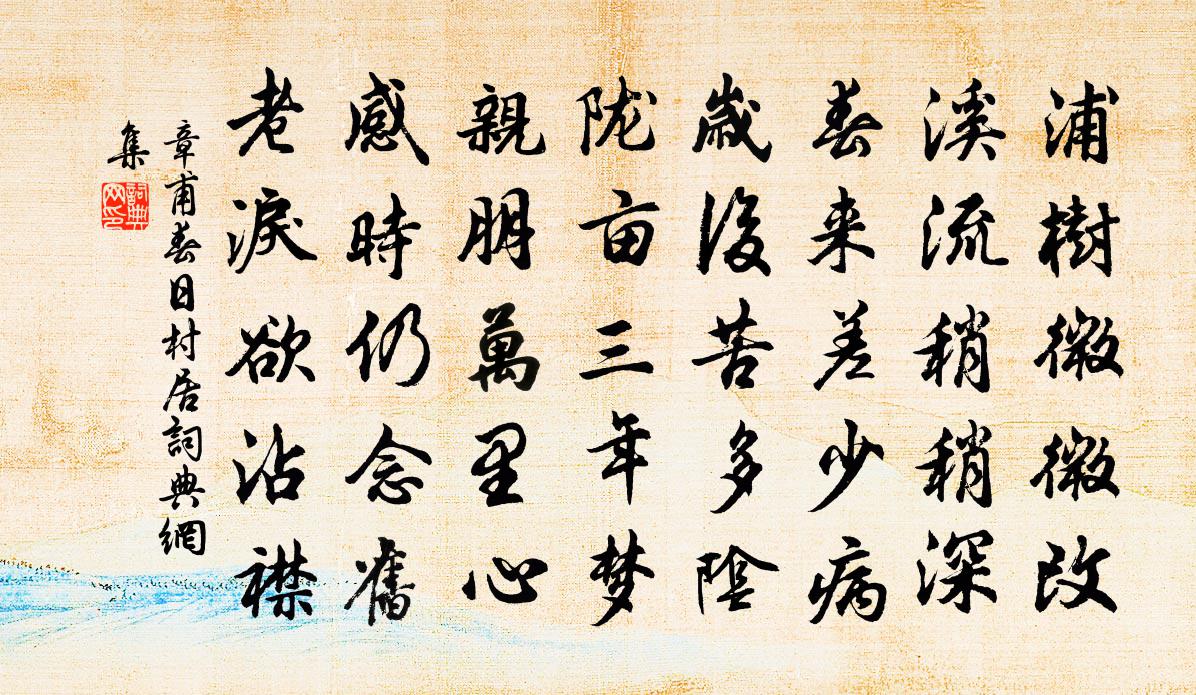 浦樹微微改
溪流稍稍深
春来差少病
歲後苦多陰
陇亩三年梦
親朋萬里心
感時仍念舊
老淚欲沾襟
章甫春日村居詞典網
集
詞典
网印